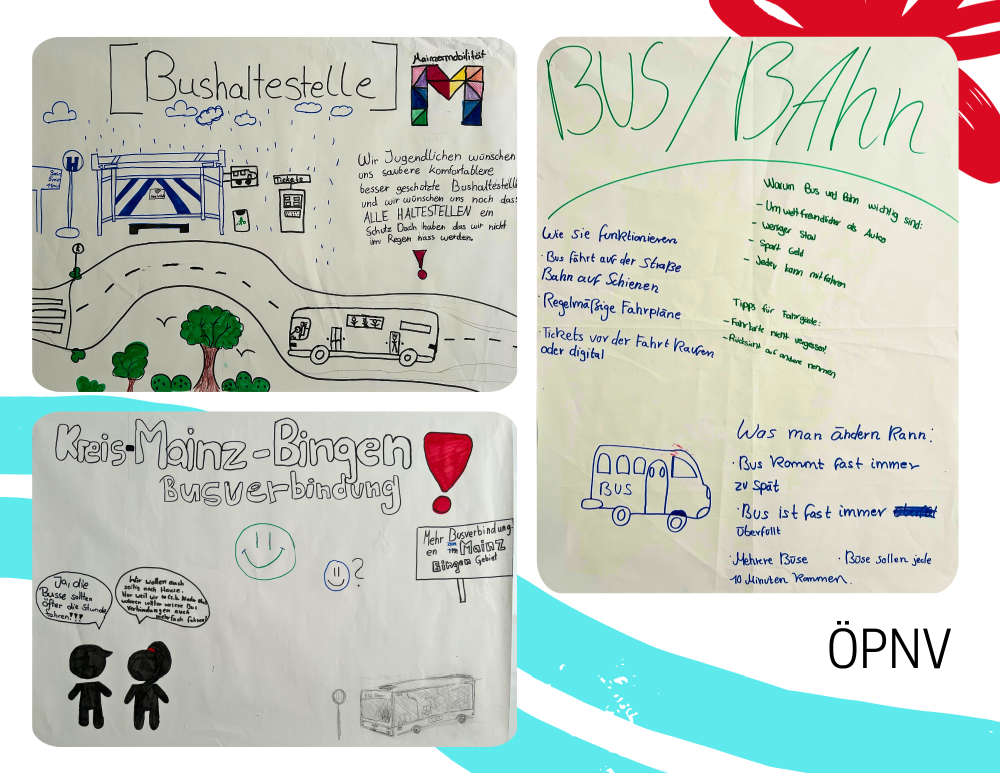 [Bushaltestelle]
Mainzermobilität
M
H
Tickets
Wir Jugendlichen wünschen
uns saubere komfortablere
besser geschötzte Bushaltestelle
und wir wünschen uns noch das
ALLE HALTESTELLEN ein
Schutz Dach haben das wir nicht
im Regen nass werden.
!
Kreis-Mainz-Bingen
Busverbindung
!
Mehr Busverbindung-
en im Mainz
Bingen Gebiet
?
Ja, die
Busse sollten
öfter die Stunde
fahren!!!
Wir wollen auch
zeitig nach Hause.
Nur weil wir
wohnen sollten unsere Bus
verbindungen auch
mehrfach fahren!
BUS/BAhn
Warum Bus und Bahn wichtig sind:
- Umweltfreundlicher als Autos
- weniger Stau
- Spart Geld
- Jeder kann mitfahren
Wie sie funktionieren
· Bus fährt auf der Straße
Bahn auf Schienen
· Regelmäßige Fahrpläne
· Tickets vor der Fahrt kaufen
oder digital
Tipps für Fahrgäste:
- Fahrkarte nicht vergessen!
- Rücksicht auf andere nehmen
BUS
Was man ändern kann:
· Bus kommt fast immer
zu spät
· Bus ist fast immer
überfüllt
· Mehrere Büse · Büse sollen jede
10 Minuten kommen.
ÖPNV